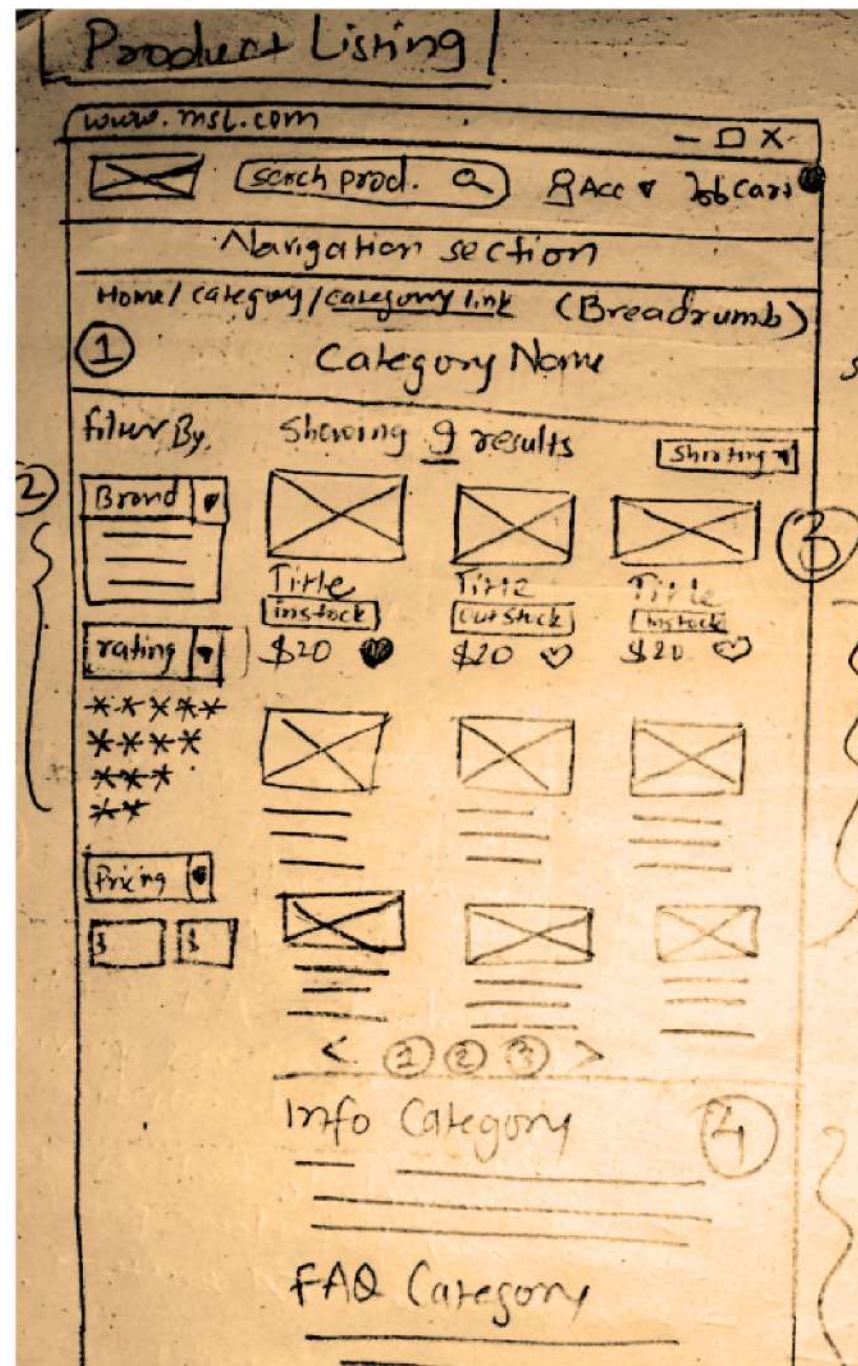 Product Listing
www.msl.com
- □ X
serch prod. Acc ▾ Cart
Navigation section
Home/ category / category link (Breadrumb)
1 Category Name
filter By Showing 9 results Shorting ▾
2
Brand ▾
3
Title Title Title
instock outstock instock
rating ▾ $20 $20 $20
*****
****
***
**
Pricing ▾
$ $
< 1 2 3 >
Info Category 4
FAQ Category